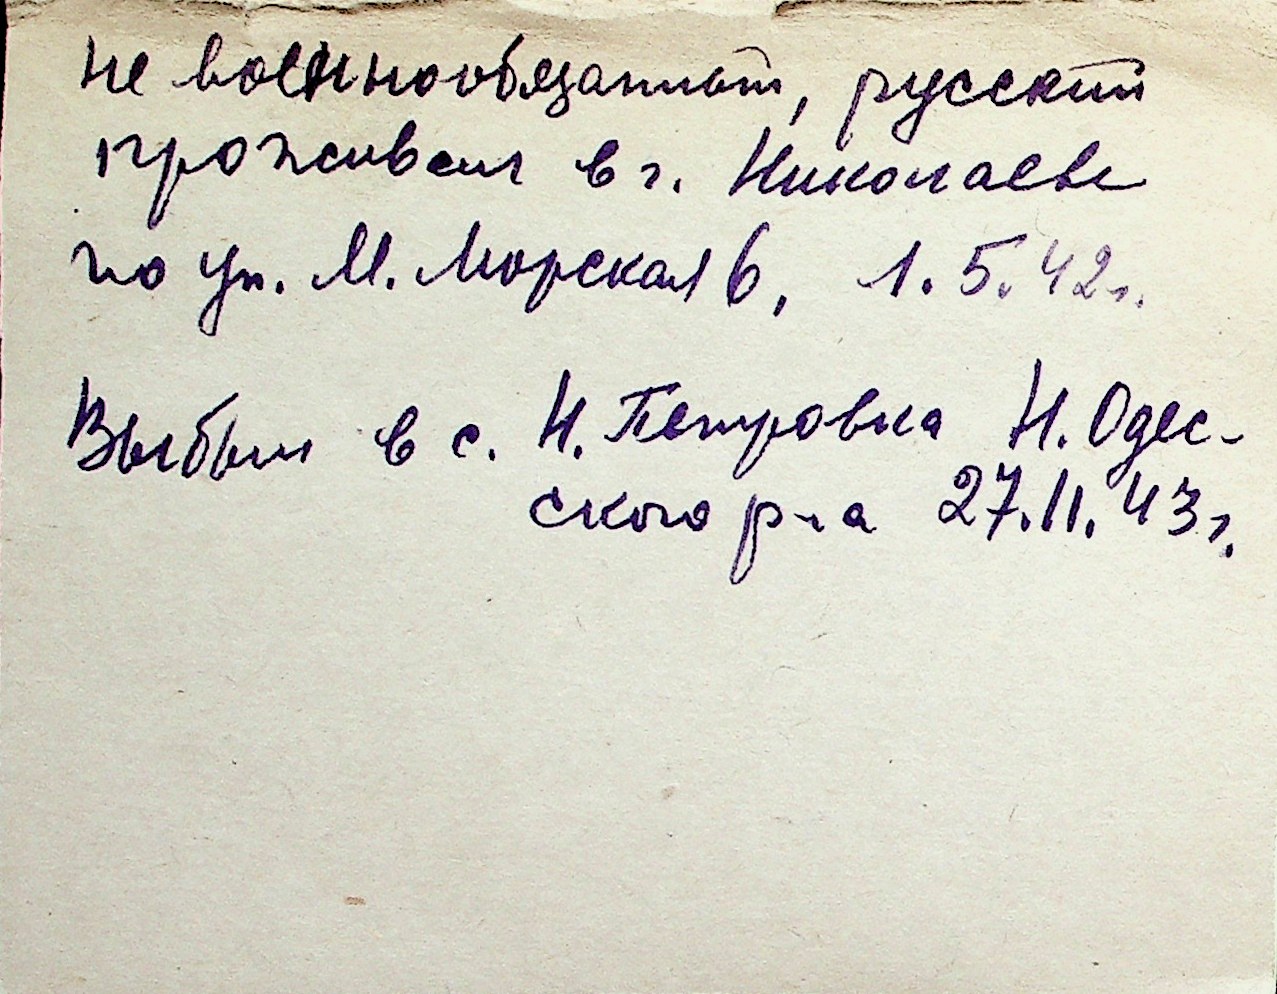 не военнообязанный, русский
проживал в г. Николаеве
по ул. М. Морская 6, 1.5.42г.
Выбыл в с. Н. Петровка Н. Одес-
ского р-на 27.11.43г.